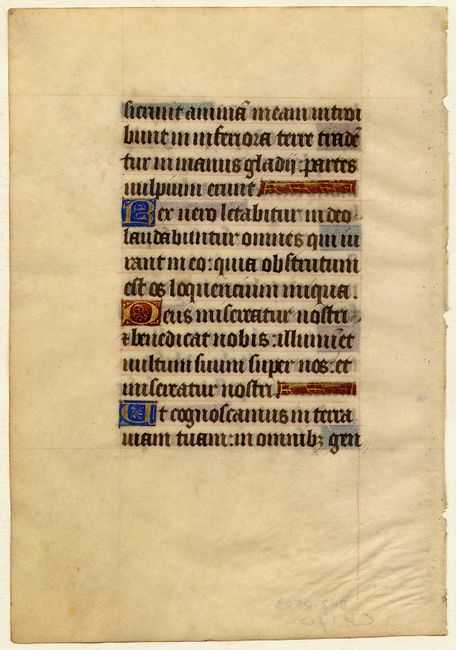 sierunt animā meam introi
bunt in inferiora terre tradē
tur in manus gladij : partes
vulpium erunt.
Rex vero letabitur in deo
laudabuntur omnes qui iu
rant in eo : quia obstrutum
est os loquencium iniqua.
Deus misereatur nostri
⁊ benedicat nobis : illumīet
vultum suum super nos : et
misereatur nostri
Ut cognoscamus in terra
viam tuam : in omnibꝫ gen